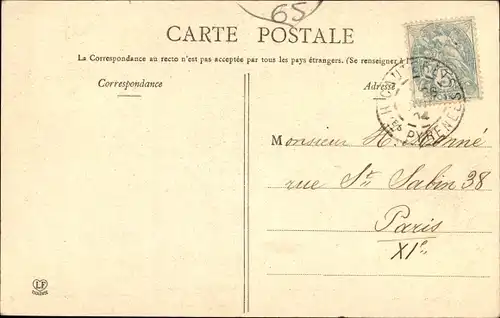 65
CARTE POSTALE
La Correspondance au recto n'est pas acceptée par tous les pays étrangers. (Se renseigner à
Correspondance
Adresse
PYRENEES
Monsieur H.
rue St. Sabin 38
Paris
XIe
LF